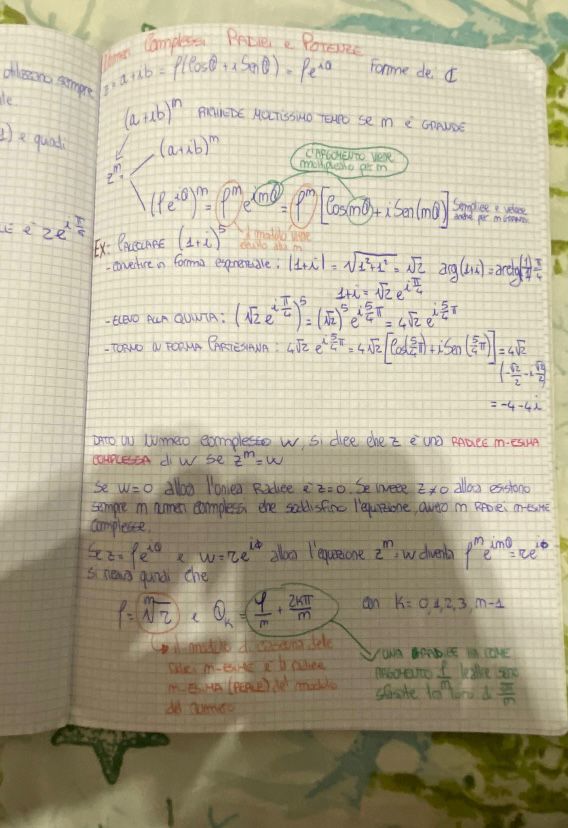 Numeri Complessi RADICI e POTENZE
z = a+ib = ρ(Cosθ + i Senθ) = ρe^{iθ} Forme dei ℂ
utilizzano sempre
(a+ib)^m RICHIEDE MOLTISSIMO TEMPO SE m È GRANDE
1) e quindi
(a+ib)^m
L'ARGOMENTO VIENE
moltiplicato per m
z^m =
(ρe^{iθ})^m = ρ^m e^{imθ} = ρ^m [Cos(mθ) + i Sen(mθ)] Semplice e veloce
anche per m GRANDE
il modulo viene
elevato alla m
È 2e^{i π/4}
EX: CALCOLARE (1+i)^5
- convertire in forma esponenziale: |1+i| = √(1²+1²) = √2 arg(1+i) = arctg(1/1) π/4
1+i = √2 e^{i π/4}
- ELEVO ALLA QUINTA: (√2 e^{i π/4})^5 = (√2)^5 e^{i 5/4 π} = 4√2 e^{i 5/4 π}
- TORNO IN FORMA CARTESIANA: 4√2 e^{i 5/4 π} = 4√2 [Cos(5/4 π) + i Sen(5/4 π)] = 4√2
(-√2/2 - i √2/2)
= -4-4i
DATO UN numero complesso w, si dice che z è una RADICE m-ESIMA
COMPLESSA di w se z^m = w
Se w=0 allora l'unica Radice è z=0. Se invece z≠0 allora esistono
sempre m numeri complessi che soddisfino l'equazione, ovvero m RADICI m-ESIME
complesse.
Se z = ρe^{iθ} e w = re^{iφ} allora l'equazione z^m = w diventa ρ^m e^{imθ} = re^{iφ}
si ricava quindi che
ρ = ᵐ√r e θ_K = φ/m + 2Kπ/m con K = 0,1,2,3, m-1
il modulo di ciascuna delle
radici m-ESIME è la radice
m-ESIMA (REALE) del modulo
del numero
UNA RADICE HA COME
ARGOMENTO φ/m le altre sono
sfasate tra loro di 2π/m